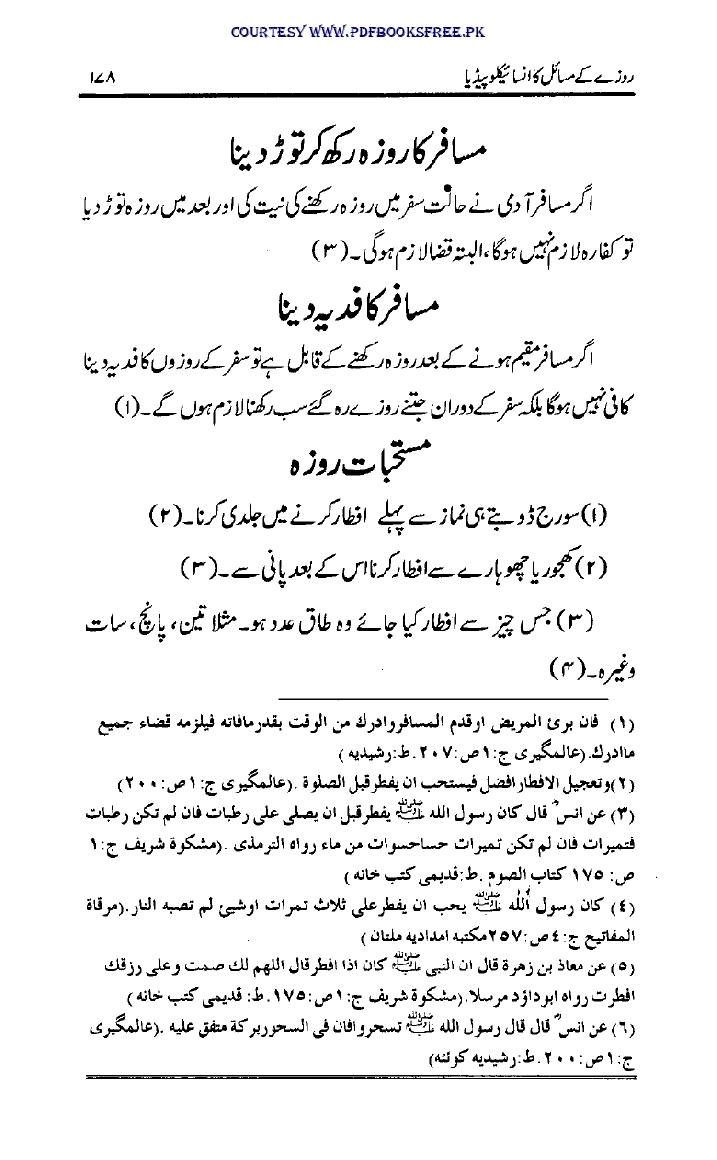 COURTESY WWW.PDFBOOKSFREE.PK
روزے کے مسائل کا انسائیکلوپیڈیا ۱۷۸
مسافر کا روزہ رکھ کر توڑ دینا
اگر مسافر آدمی نے حالت سفر میں روزہ رکھنے کی نیت کی اور بعد میں روزہ توڑ دیا
تو کفارہ لازم نہیں ہوگا، البتہ قضا لازم ہوگی۔ (۳)
مسافر کا فدیہ دینا
اگر مسافر مقیم ہونے کے بعد روزہ رکھنے کے قابل ہے تو سفر کے روزوں کا فدیہ دینا
کافی نہیں ہوگا بلکہ سفر کے دوران جتنے روزے رہ گئے سب رکھنا لازم ہوں گے۔ (۱)
مستحبات روزہ
(۱) سورج ڈوبتے ہی نماز سے پہلے افطار کرنے میں جلدی کرنا۔ (۲)
(۲) کھجور یا چھوہارے سے افطار کرنا اس کے بعد پانی سے۔ (۳)
(۳) جس چیز سے افطار کیا جائے وہ طاق عدد ہو۔ مثلا تین، پانچ، سات
وغیرہ۔ (۴)
(۱) فان برئ المریض اوقدم المسافر وادرك من الوقت بقدر مافاته فیلزمه قضاء جمیع
ماادرك. (عالمگیری ج: ۱ ص: ۲۰۷. ط: رشیدیه)
(۲) وتعجیل الافطار افضل فیستحب ان یفطر قبل الصلوة. (عالمگیری ج: ۱ ص: ۲۰۰)
(۳) عن انسؓ قال كان رسول الله ﷺ یفطر قبل ان یصلی علی رطبات فان لم تکن رطبات
فتمیرات فان لم تکن تمیرات حساحسوات من ماء رواه الترمذی. (مشکوة شریف ج: ۱
ص: ۱۷۵ کتاب الصوم. ط: قدیمی کتب خانه)
(٤) کان رسول الله ﷺ یحب ان یفطر علی ثلاث تمرات اوشیئ لم تصبه النار. (مرقاة
المفاتیح ج: ٤ ص: ۲۵۷ مکتبه امدادیه ملتان)
(۵) عن معاذ بن زهرة قال ان النبی ﷺ کان اذا افطر قال اللهم لك صمت وعلی رزقك
افطرت رواه ابوداؤد مرسلا. (مشکوة شریف ج: ۱ ص: ۱۷۵. ط: قدیمی کتب خانه)
(٦) عن انسؓ قال قال رسول الله ﷺ تسحروا فان فی السحور برکة متفق علیه. (عالمگیری
ج: ۱ ص: ۲۰۰. ط: رشیدیه کوئٹه)